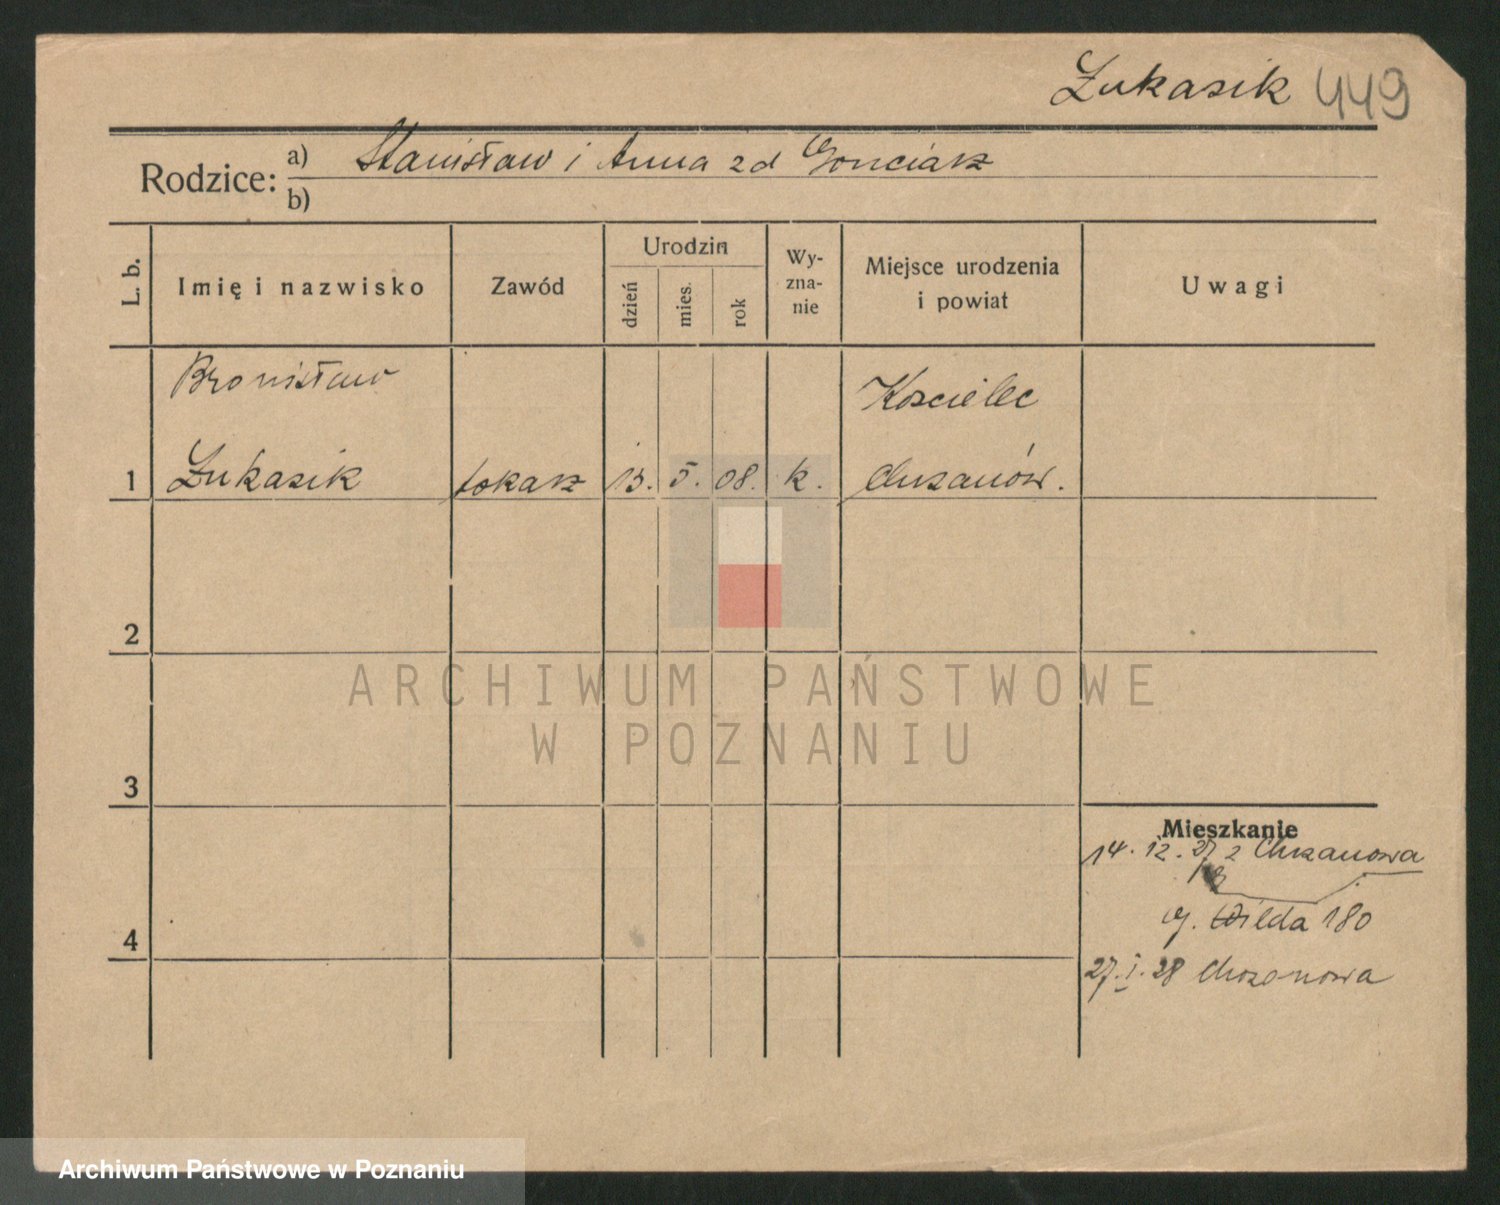 Łukasik 449
Rodzice: a) Stanisław i Anna zd Gonciarz
b)
L. b.
Imię i nazwisko
Zawód
Urodzin
dzień
mies.
rok
Wy-
zna-
nie
Miejsce urodzenia
i powiat
Uwagi
Bronisław
Kościelec
1 Łukasik tokarz 13. 5. 08. k. Chrzanów.
2
ARCHIWUM PAŃSTWOWE
W POZNANIU
3
Mieszkanie
14. 12. 27 z Chrzanowa
4
g. Wilda 180
27. I. 28 Chrzanowa
Archiwum Państwowe w Poznaniu